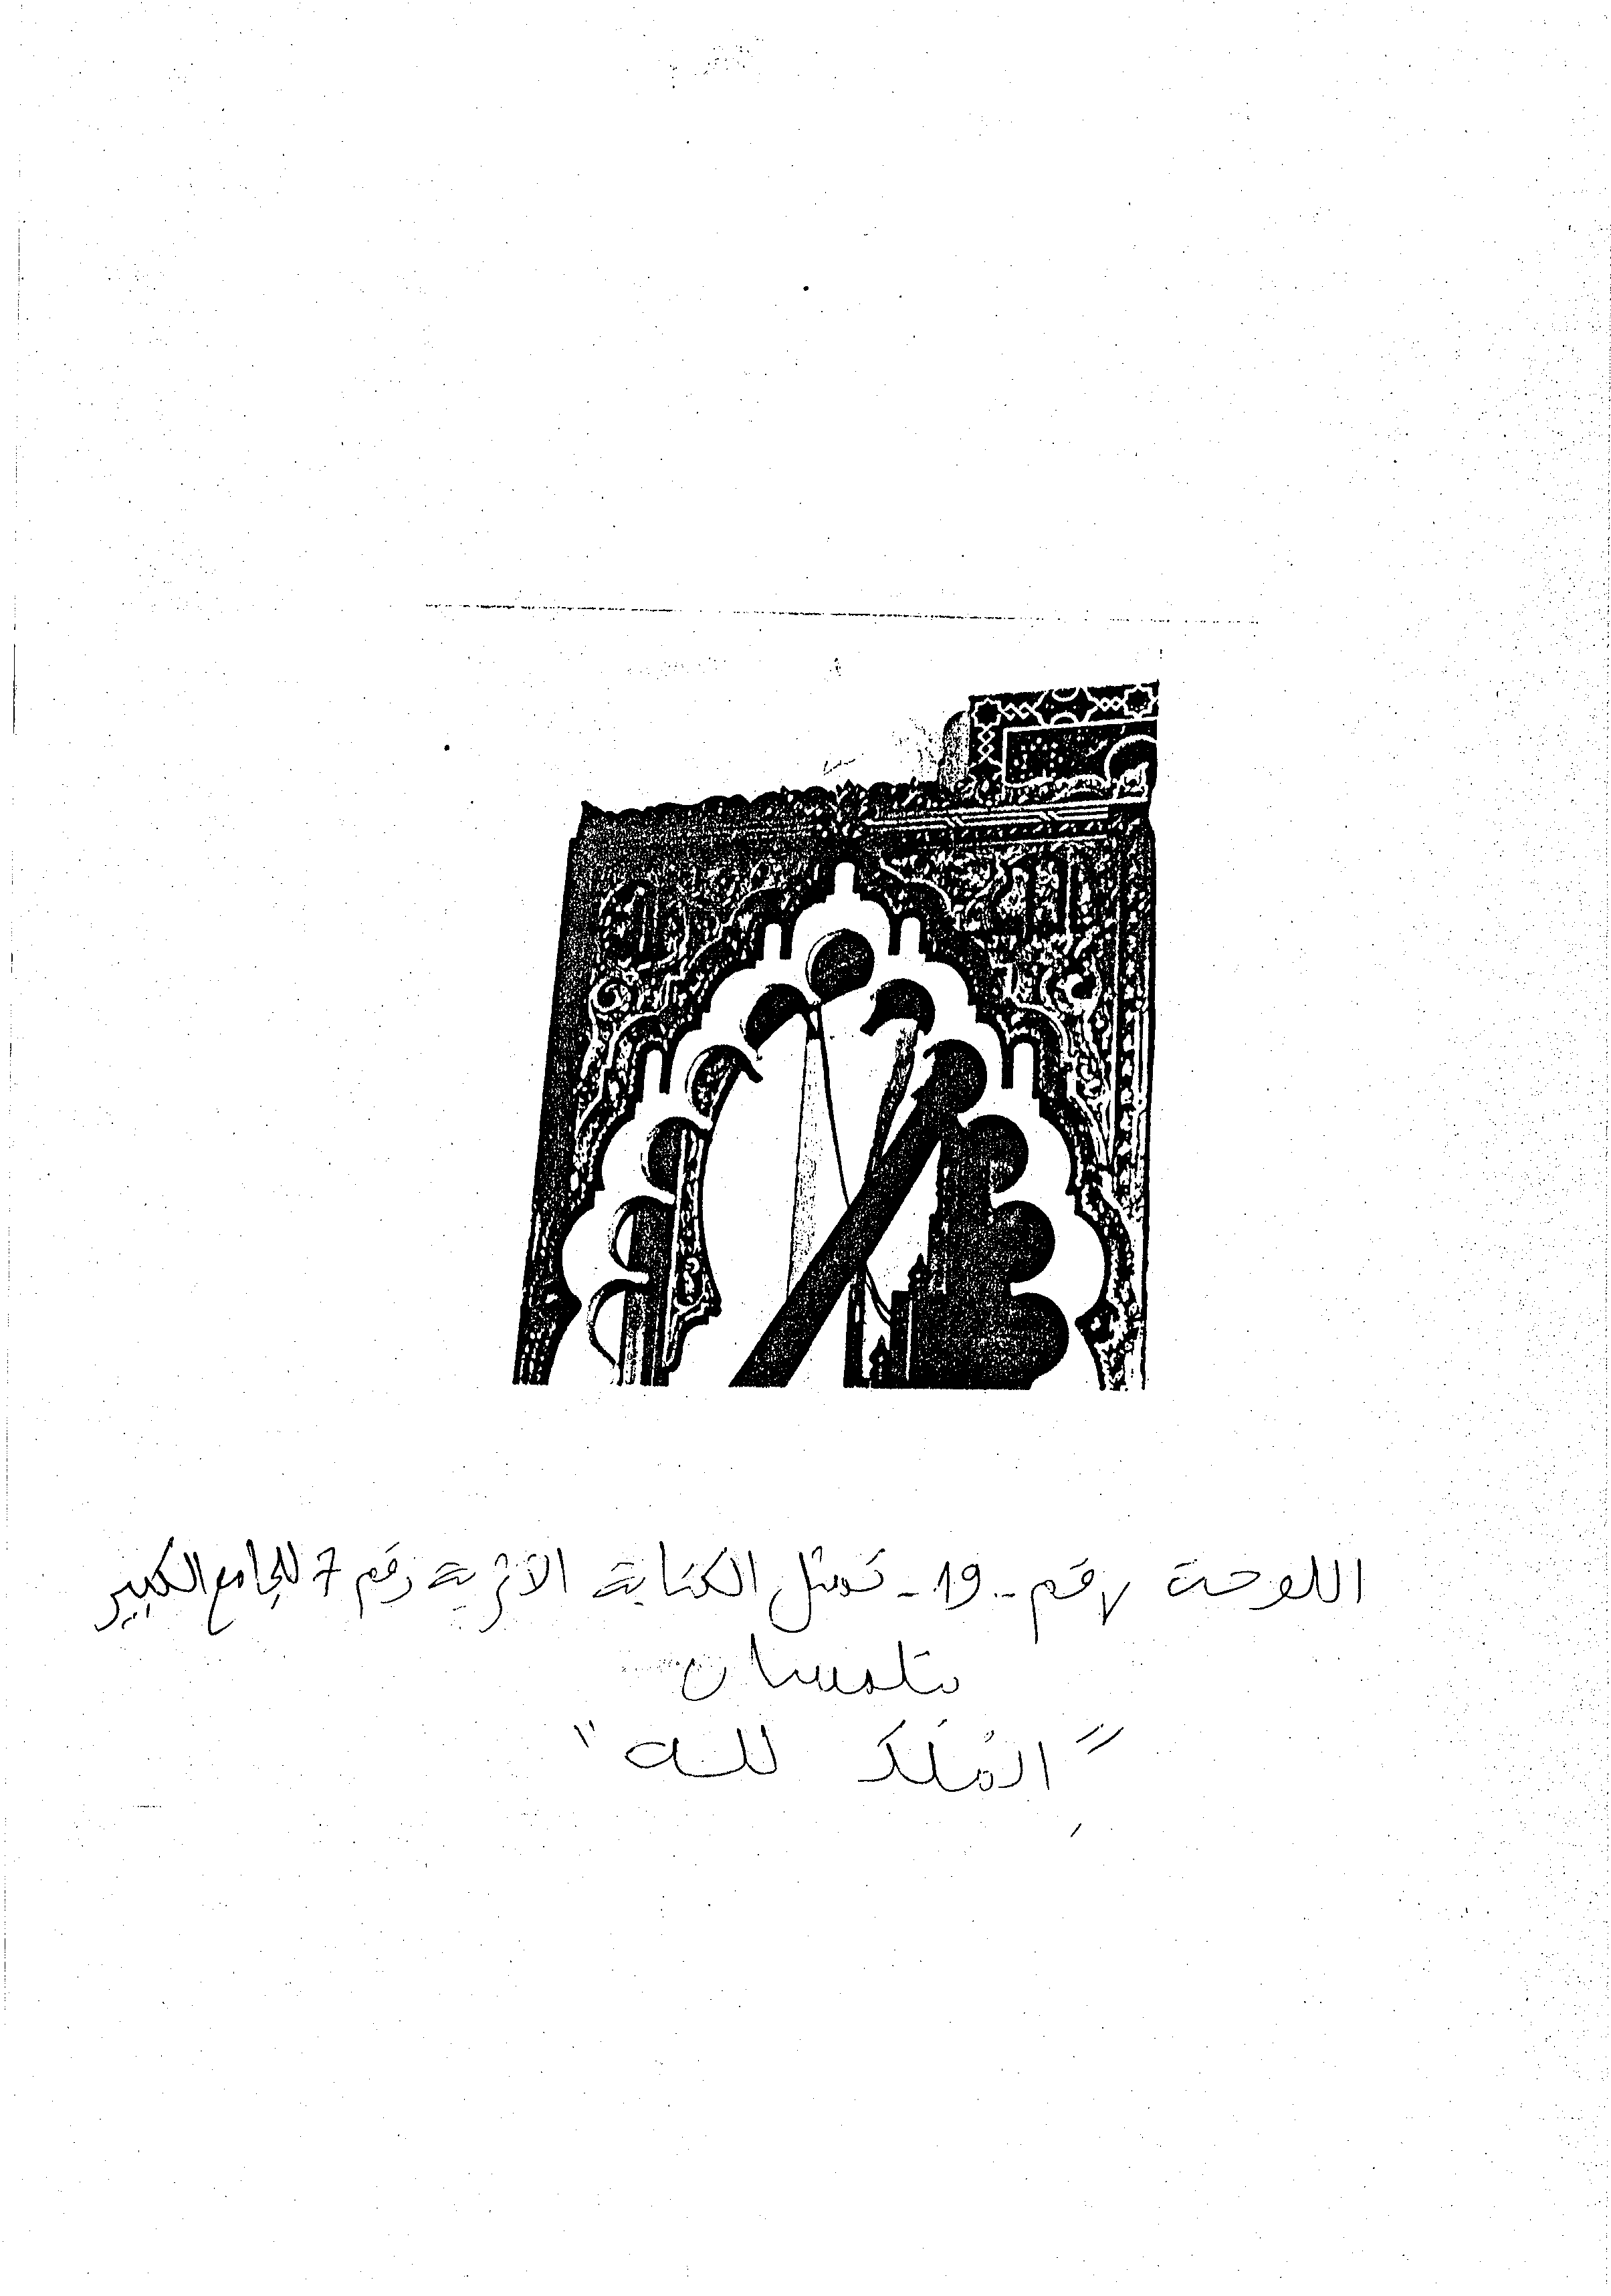 اللوحة رقم - 19 - تمثل الكتابة الأثرية رقم 7 للجامع الكبير
بتلمسان
"المُلَكَ لله"